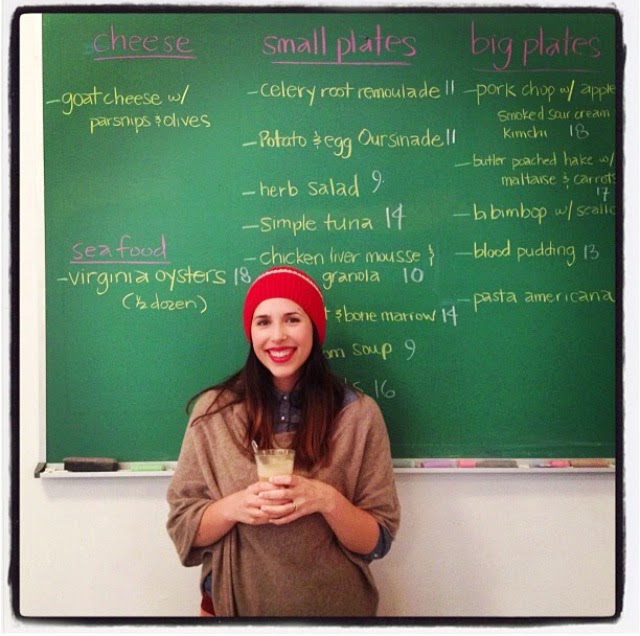 cheese
- goat cheese w/
parsnips & olives
seafood
- virginia oysters 18
(½ dozen)
small plates
- celery root remoulade 11
- Potato & egg Oursinade 11
- herb salad 9
- simple tuna 14
- chicken liver mousse &
granola 10
& bone marrow 14
soup 9
16
big plates
- pork chop w/ apple
smoked sour cream
kimchi 18
- butter poached hake w/
maltaise & carrots
17
- bibimbop w/
- blood pudding 13
- pasta americana